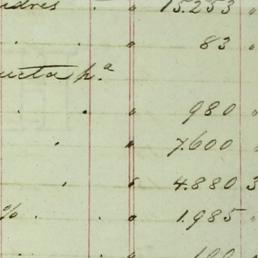 ndres . " 15.253 "
. " 83 "
ucta p.ª
. " 980 "
. " 7.600 "
. " 4.880 3
% . . " 1.985 "
. " 100 "